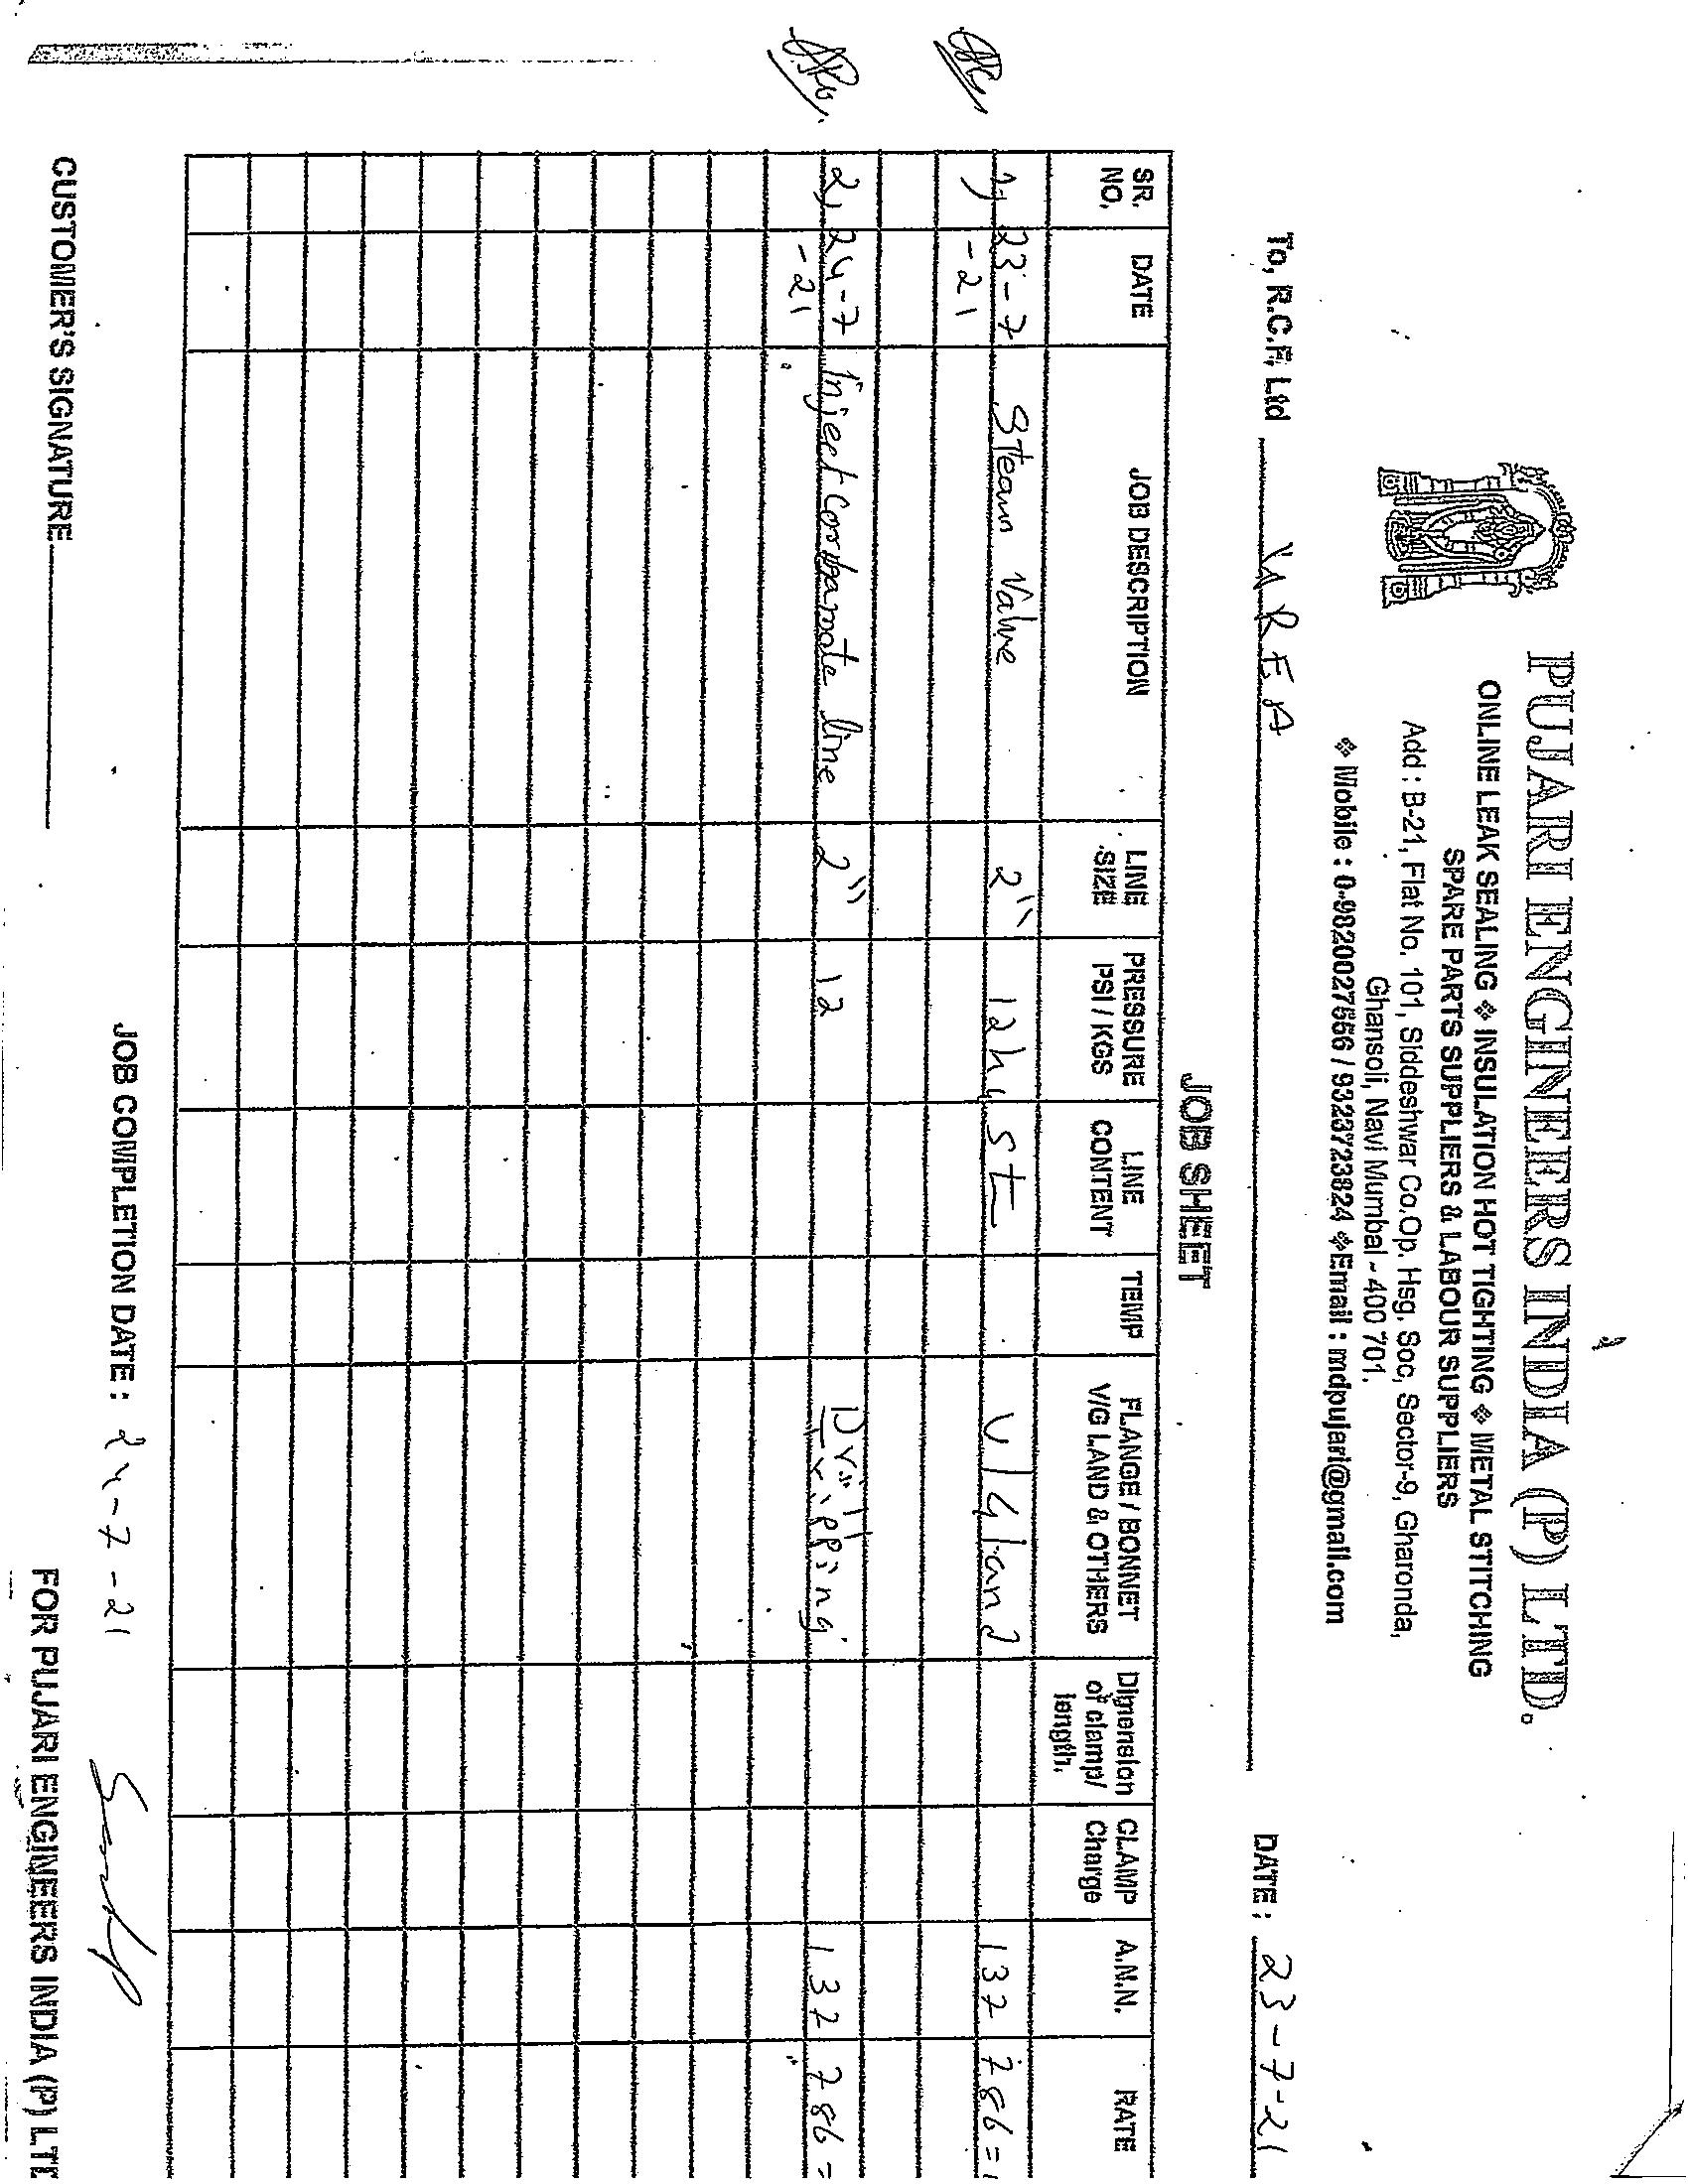 PUJARI ENGINEERS INDIA (P) LTD.
ONLINE LEAK SEALING ❖ INSULATION HOT TIGHTING ❖ METAL STITCHING
SPARE PARTS SUPPLIERS & LABOUR SUPPLIERS
Add : B-21, Flat No. 101, Siddeshwar Co.Op. Hsg. Soc, Sector-9, Gharonda,
Ghansoli, Navi Mumbai - 400 701.
❖ Mobile : 0-9820027556 / 9323723824 ❖ Email : mdpujari@gmail.com
To, R.C.F. Ltd UREA DATE: 23-7-21
JOB SHEET
SR. NO. DATE JOB DESCRIPTION LINE SIZE PRESSURE PSI / KGS LINE CONTENT TEMP FLANGE / BONNET V/G LAND & OTHERS Dimension of clamp/ length. CLAMP Charge A.N.N. RATE
1) 23-7-21 Steam Valve 2" 12 st V/Gland 132 786=
2) 24-7-21 Inject Carbamate line 2" 12 Drill Tapping 132 786=
JOB COMPLETION DATE: 24-7-21
CUSTOMER'S SIGNATURE
FOR PUJARI ENGINEERS INDIA (P) LTD